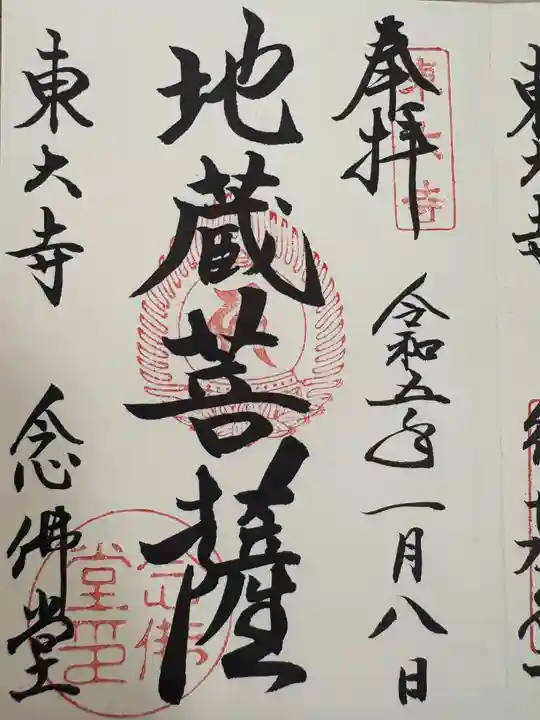 奉拝
東大寺
令和五年一月八日
地蔵菩薩
東大寺 念佛堂
念佛堂印
東大寺